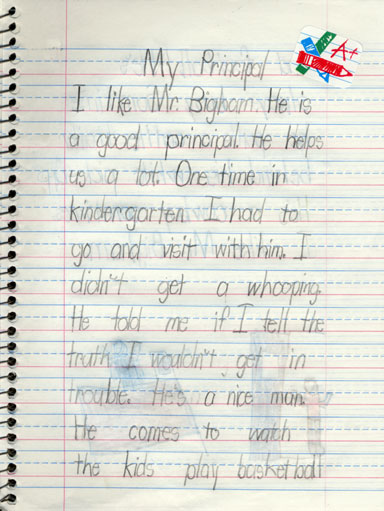 A+
My Principal
I like Mr. Bigham. He is
a good principal. He helps
us a lot. One time in
kindergarten I had to
go and visit with him. I
didn't get a whooping.
He told me if I tell the
truth I wouldn't get in
trouble. He's a nice man.
He comes to watch
the kids play basketball